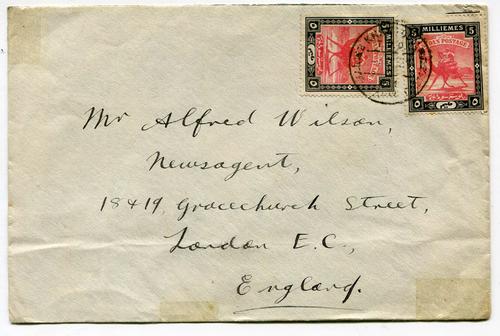 5 MILLIEMES 5
5 MILLIEMES 5
POSTAGE
Mr Alfred Wilson,
Newsagent,
18 & 19, Gracechurch Street,
London E.C.,
England.